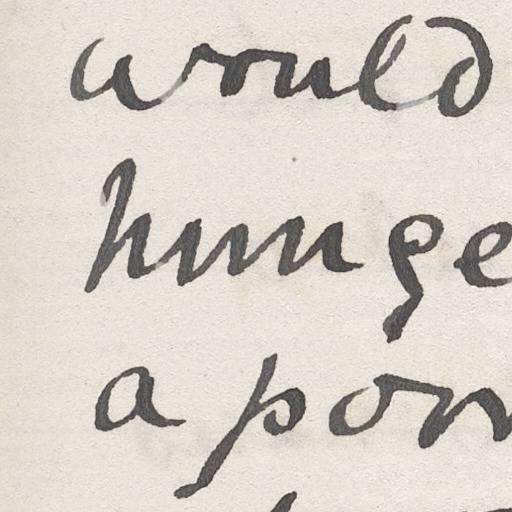 would
hunge
a poor